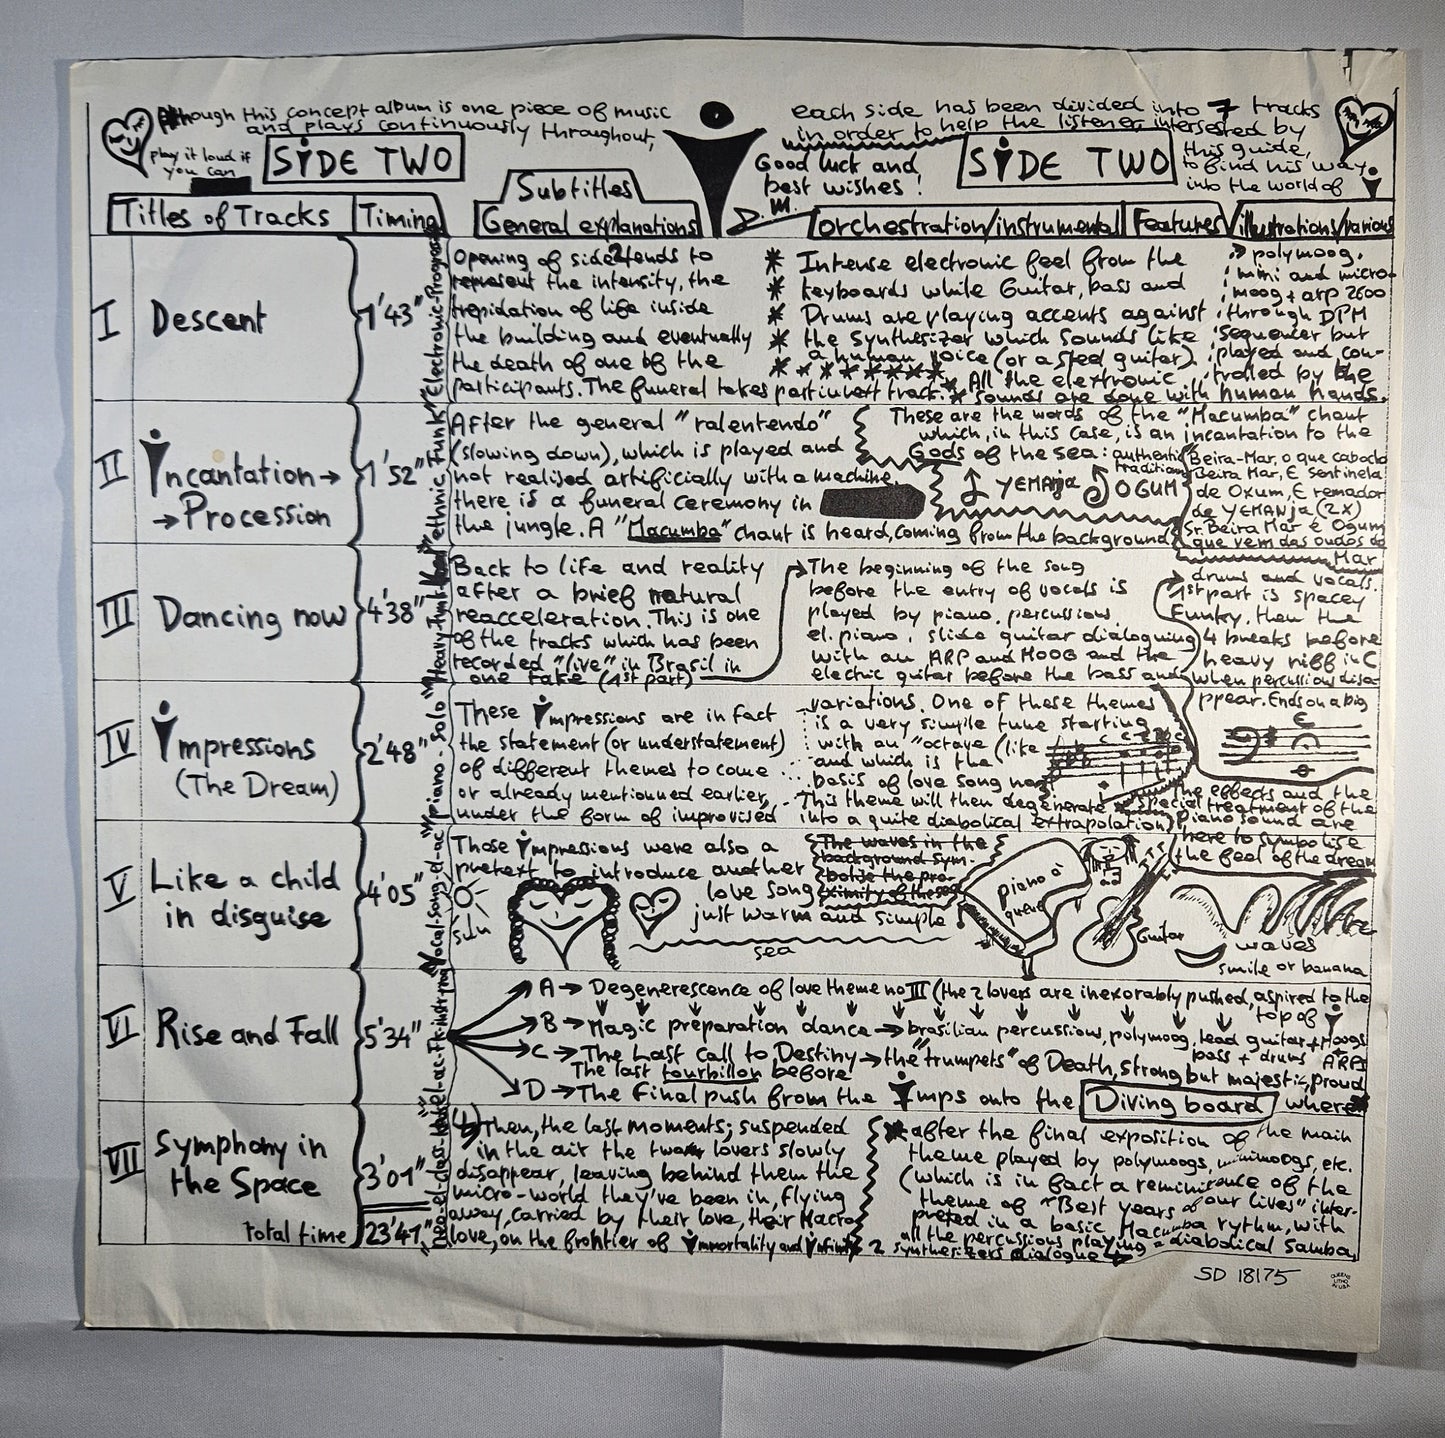 Although this concept album is one piece of music
and plays continuously throughout,
each side has been divided into 7 tracks
in order to help the listener, interested by
this guide,
to find his way
into the world of
play it loud if
you can
SiDE TWO
Good luck and
best wishes!
P.M.
SiDE TWO
Titles of Tracks
Timing
Subtitles
General explanations
orchestration/instrumental
Features
illustrations/various
I
Descent
1'43"
Electronic-Progress
Opening of side 2 tends to
represent the intensity, the
trepidation of life inside
the building and eventually
the death of one of the
participants. The funeral takes part in next track.
* Intense electronic feel from the
* keyboards while Guitar, bass and
* Drums are playing accents against
* the synthesizer which sounds like
* a human voice (or a steel guitar).
* All the electronic
* sounds are done with human hands.
→ polymoog,
mini and micro-
moog + arp 2600
through DPM
sequencer but
played and con-
trolled by the
II
incantation →
→ Procession
1'52"
"ethnic Funk"
After the general "ralentendo"
(slowing down), which is played and
not realised artificially with a machine,
there is a funeral ceremony in
the jungle. A "Macumba" chant is heard, coming from the background
These are the words of the "Macumba" chant
which, in this case, is an incantation to the
Gods of the sea: authentic
traditional
YEMANja
OGUM
Beira-Mar, o que caboclo
Beira Mar, E sentinela
de Oxum, E remador
de YEMANja (2X)
Sr. Beira Mar é Ogum
que vem das ondas do
Mar
III
Dancing now
4'38"
"Heavy-Funk-Vocal"
Back to life and reality
after a brief natural
reacceleration. This is one
of the tracks which has been
recorded "live" in Brasil in
one take (1st part)
The beginning of the song
before the entry of vocals is
played by piano, percussions,
el. piano, slide guitar dialoguing
with an ARP and MOOG and the
electric guitar before the bass and
drums and vocals.
1st part is spacey
Funky, then the
4 breaks before
heavy riff in C
when percussions disa-
ppear. Ends on a big
C
IV
impressions
(The Dream)
2'48"
"piano-Solo"
These impressions are in fact
the statement (or understatement)
of different themes to come
or already mentionned earlier,
under the form of improvised
variations. One of these themes
is a very simple tune starting
with an "octave (like
and which is the
basis of love song no
This theme will then degenerate
into a quite diabolical extrapolation)
The effects and the
special treatment of the
piano sound are
here to symbolise
the feel of the dream
V
Like a child
in disguise
4'05"
"Vocal-Song-el-ac"
Those impressions were also a
pretext to introduce another
love song
just warm and simple
The waves in the
background sym-
bolize the pro-
ximity of the sea
sun
sea
piano à
queue
Guitar
waves
smile or banana
VI
Rise and Fall
5'34"
A → Degenerescence of love theme no III (the 2 lovers are inexorably pushed, aspired to the
top of
B → Magic preparation dance → brasilian percussions, polymoog, lead guitar + Moogs
bass + drums ARPs
C → The Last call to Destiny → the "trumpets" of Death, strong but majestic, proud
The last tourbillon before
D → The Final push from the imps onto the Diving board where
VII
Symphony in
the Space
3'01"
Then, the last moments; suspended
in the air the two lovers slowly
disappear, leaving behind them the
micro-world they've been in, flying
away, carried by their love, their Macro
love, on the frontier of immortality and infinity
* after the final exposition of the main
theme played by polymoogs, minimoogs, etc.
(which is in fact a reminiscence of the
theme of "Best years of our lives" inter-
preted in a basic Macumba rythm, with
all the percussions playing a diabolical Samba,
2 synthesizers dialogue
Total time
23'41"
SD 18175